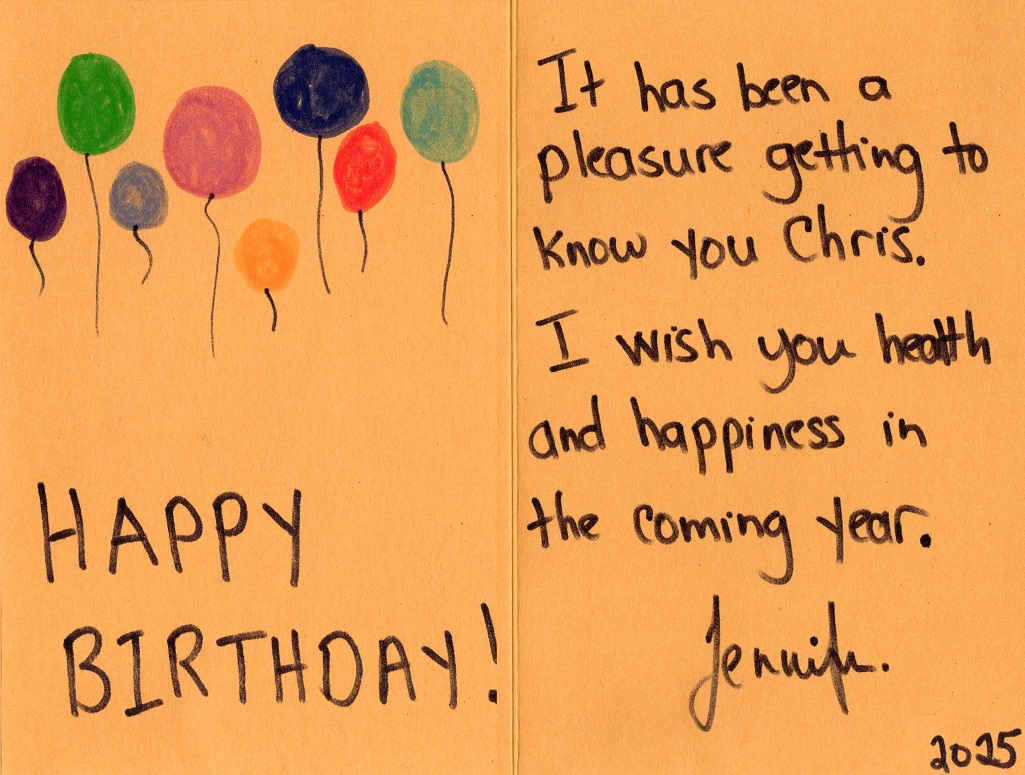 HAPPY
BIRTHDAY!
It has been a
pleasure getting to
know you Chris.
I wish you health
and happiness in
the coming year.
Jennifer.
2025